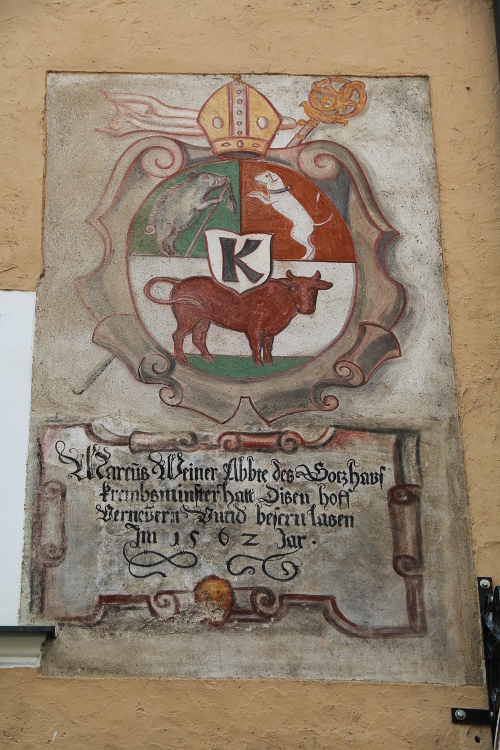 K
Marcus Weiner Abbte des Gotzhaus
Krembsmunster hatt Disen hoff
Verneuern Vnnd besern lasen
Im 1562 Jar.